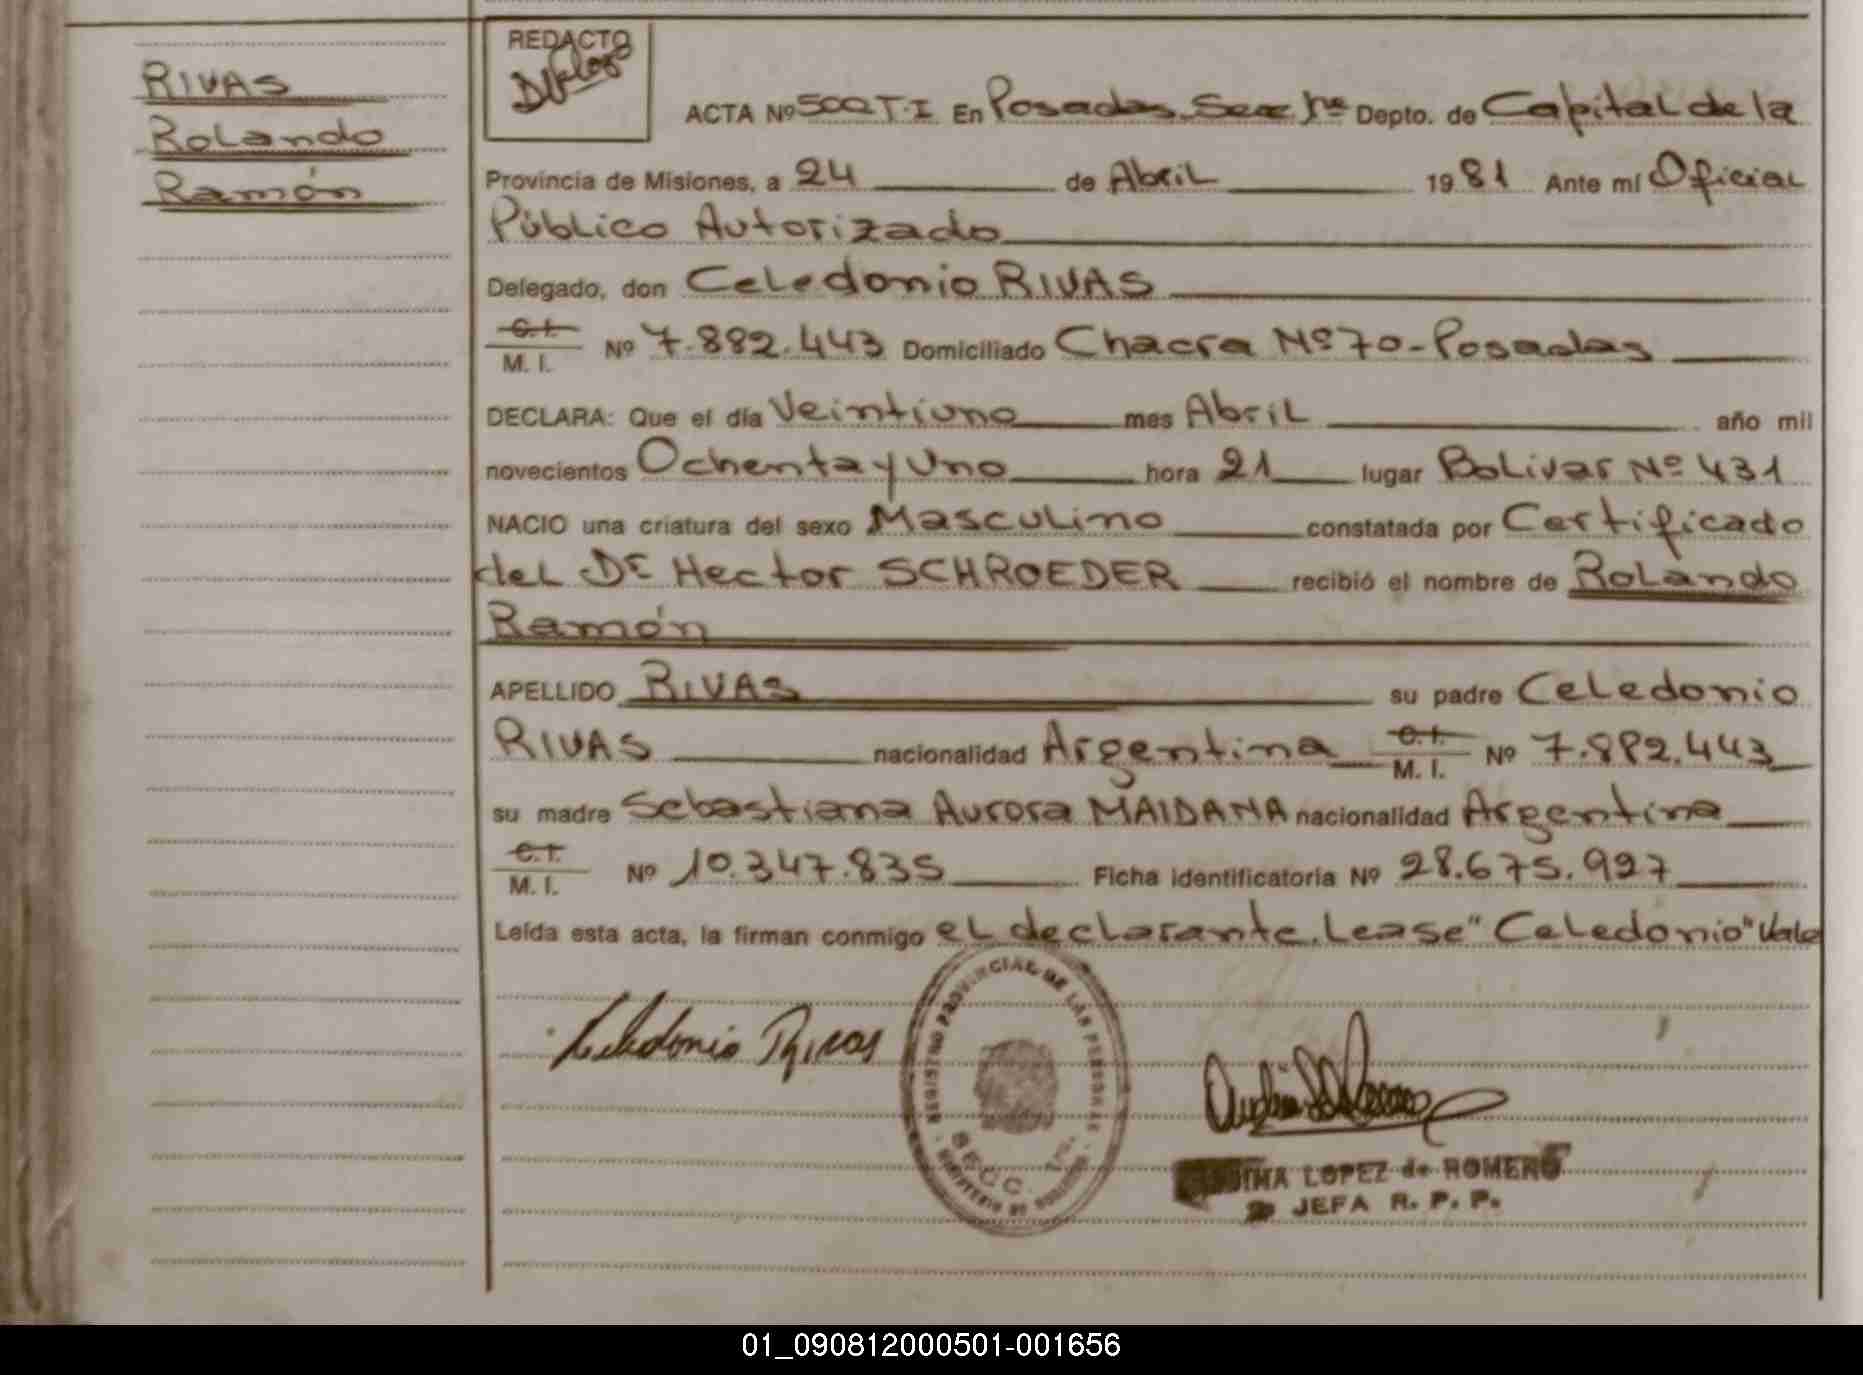 RIVAS
Rolando
Ramón
REDACTO
ACTA Nº 500 T-I En Posadas, Secc 1ra Depto. de Capital de la
Provincia de Misiones, a 24 de Abril 1981 Ante mí Oficial
Público Autorizado
Delegado, don Celedonio RIVAS
C.I.
M. I. Nº 7.882.443 Domiciliado Chacra Nº 70-Posadas
DECLARA: Que el día Veintiuno mes Abril año mil
novecientos Ochenta y Uno hora 21 lugar Bolivar Nº 431
NACIO una criatura del sexo Masculino constatada por Certificado
del Dr Hector SCHROEDER recibió el nombre de Rolando
Ramón
APELLIDO RIVAS su padre Celedonio
RIVAS nacionalidad Argentina C.I. M. I. Nº 7.882.443
su madre Sebastiana Aurora MAIDANA nacionalidad Argentina
C.I.
M. I. Nº 10.347.835 Ficha identificatoria Nº 28.675.927
Leída esta acta, la firman conmigo el declarante. Lease "Celedonio" Vale
Celedonio Rivas
REGISTRO PROVINCIAL DE LAS PERSONAS
LOPEZ de ROMERO
JEFA R. P. P.
01_090812000501-001656